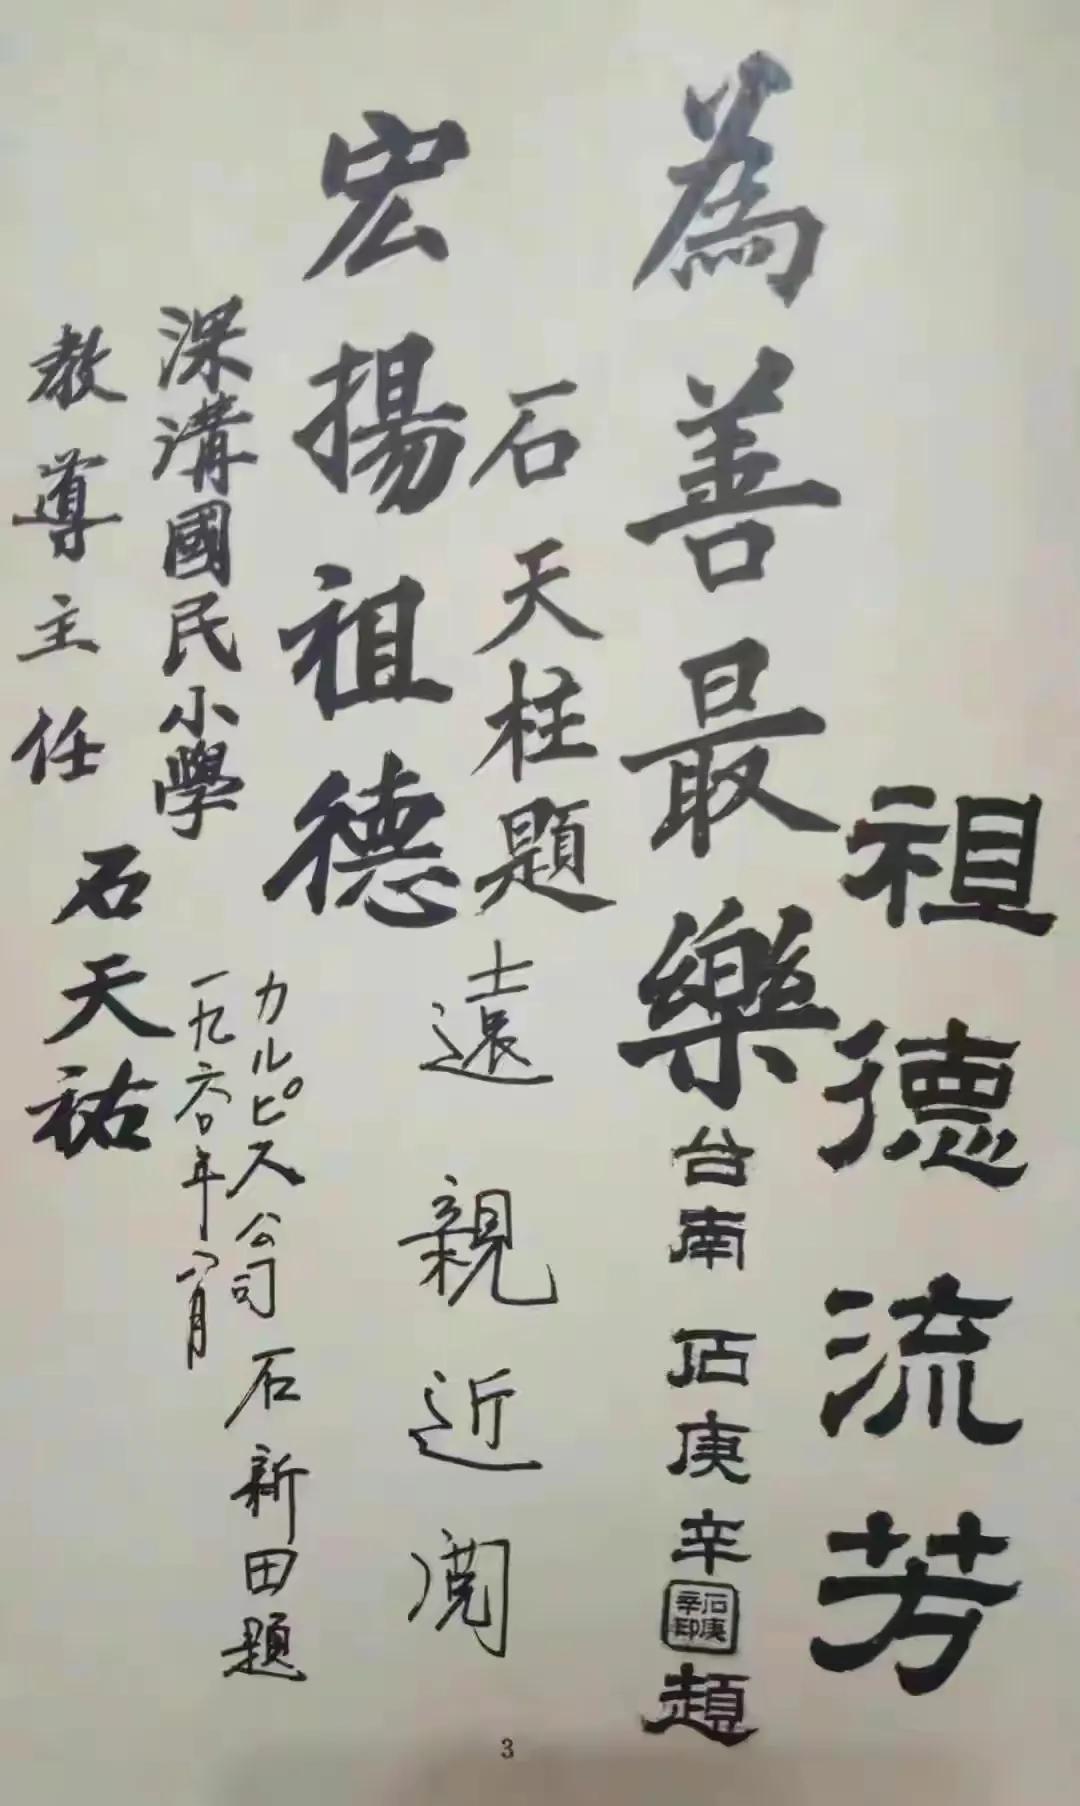 祖德流芳
台南 石庚辛
石庚辛印
題
為善最樂
石天柱題
宏揚祖德
深溝國民小學
教導主任
石天祐
遠親近
カルピス公司 石新田題
一九六〇年八月
3